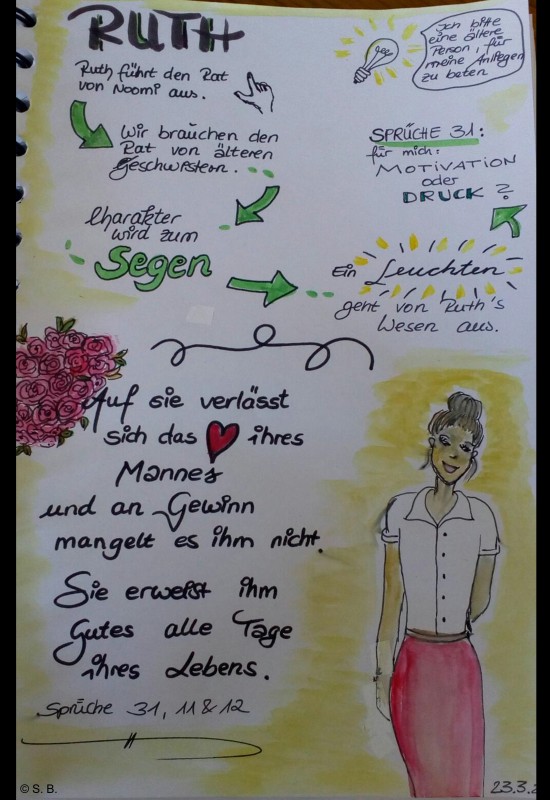 RUTH
Ruth führt den Rat
von Noomi aus.
Ich bitte
eine ältere
Person, für
meine Anliegen
zu beten
Wir brauchen den
Rat von älteren
Geschwistern.
SPRÜCHE 31:
für mich:
MOTIVATION
oder
DRUCK?
Charakter
wird zum
Segen
Ein Leuchten
geht von Ruth's
Wesen aus.
Auf sie verlässt
sich das ihres
Mannes
und an Gewinn
mangelt es ihm nicht.
Sie erweist ihm
Gutes alle Tage
ihres Lebens.
Sprüche 31, 11 & 12
© S. B.
23.3.